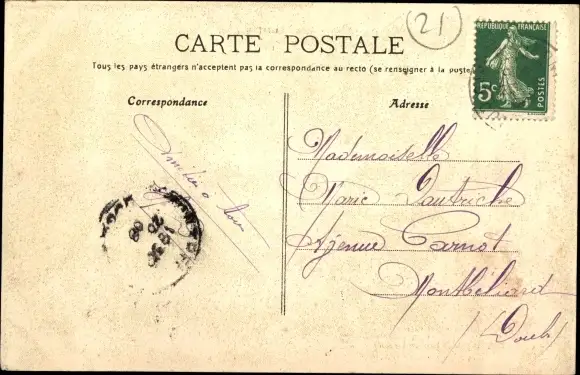 21
RÉPUBLIQUE FRANÇAISE
5c
POSTES
CARTE POSTALE
Tous les pays étrangers n'acceptent pas la correspondance au recto (se renseigner à la poste)
Correspondance
Adresse
Mademoiselle
Marie Dautriche
Avenue Carnot
Montbéliard
(Doubs)